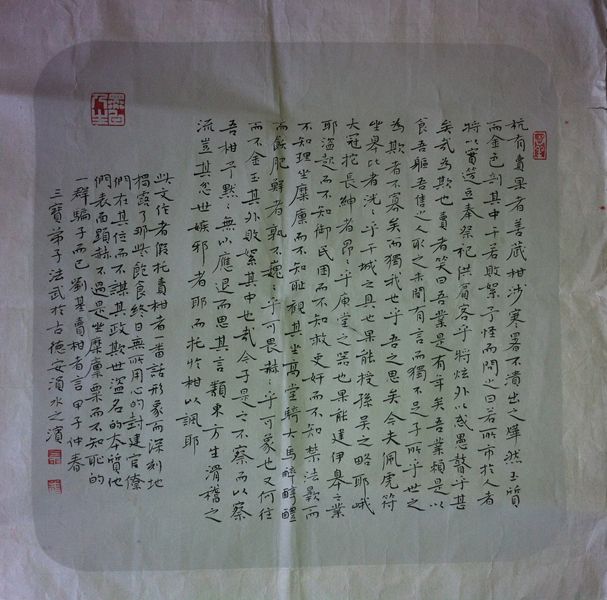 杭有賣果者善藏柑涉寒暑不潰出之燁然玉質
而金色剖其中干若敗絮予怪而問之曰若所市於人者
將以實籩豆奉祭祀供賓客乎將炫外以惑愚瞽乎甚
矣哉為欺也賣者笑曰吾業是有年矣吾業賴是以
食吾軀吾售之人取之未聞有言而獨不足子所乎世之
為欺者不寡矣而獨我也乎吾之思矣今夫佩虎符
坐皋比者洸:乎干城之具也果能授孫吳之略耶峨
大冠拖長紳者昂:乎庙堂之器也果能建伊皋之業
耶盜起而不知御民困而不知救吏奸而不知禁法斁而
不知理坐糜廩而不知耻觀其坐高堂騎大馬醉醇醴
而飫肥鮮者孰不巍:乎可畏赫:乎可象也又何往
而不金玉其外敗絮其中也哉今子是之不察而以察
吾柑予默:無以應退而思其言類東方生滑稽之
流豈其忿世嫉邪者耶而托於柑以諷耶
此文作者假托賣柑者一番話形象而深刻地
揭露了那些飲食終日無所用心的封建官僚
們在其位而不謀其政欺世盜名的本質他
們表面顯赫不過是坐糜廩粟而不知耻的
一群騙子而已劉基賣柑者言甲子仲春
三寶弟子法武於古德安溳水之濱